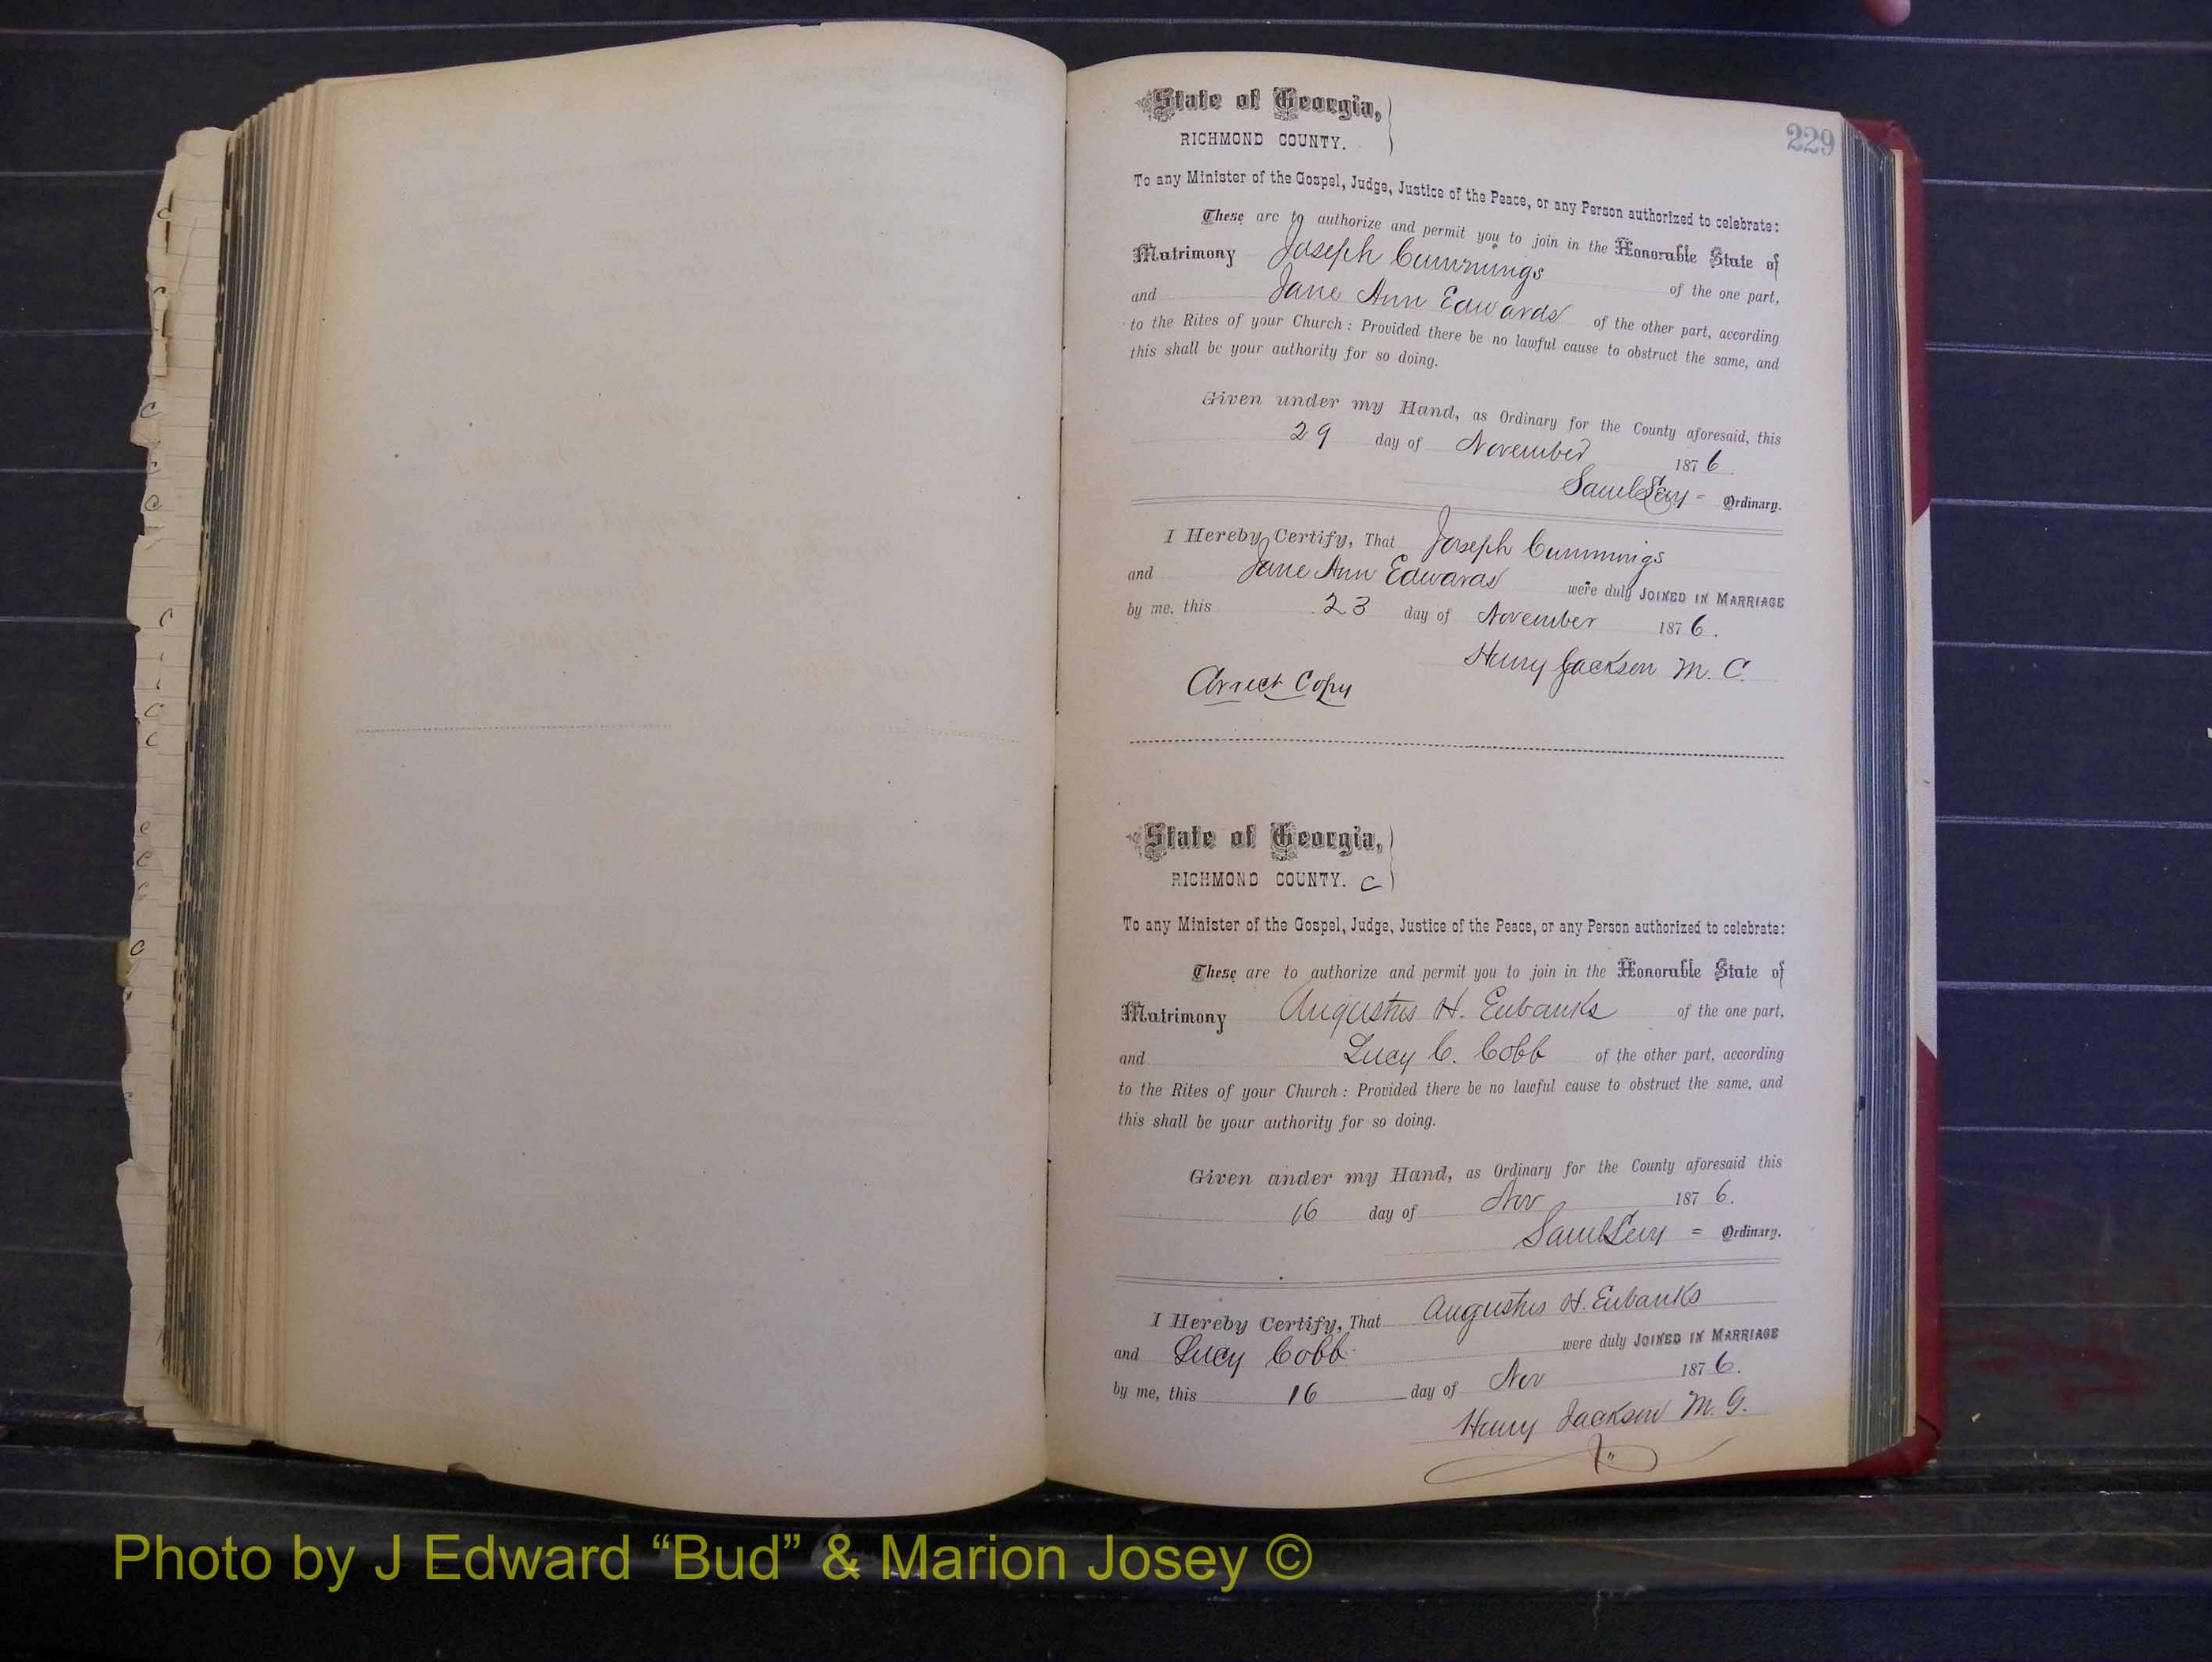 229
State of Georgia,
RICHMOND COUNTY.
To any Minister of the Gospel, Judge, Justice of the Peace, or any Person authorized to celebrate:
These are to authorize and permit you to join in the Honorable State of
Matrimony Joseph Cummings of the one part,
and Jane Ann Edwards of the other part, according
to the Rites of your Church: Provided there be no lawful cause to obstruct the same, and
this shall be your authority for so doing.
Given under my Hand, as Ordinary for the County aforesaid, this
29 day of November 1876
Saml Levy = Ordinary.
I Hereby Certify, That Joseph Cummings
and Jane Ann Edwards were duly JOINED IN MARRIAGE
by me, this 23 day of November 1876.
Henry Jackson M. C.
Correct Copy
State of Georgia,
RICHMOND COUNTY. C
To any Minister of the Gospel, Judge, Justice of the Peace, or any Person authorized to celebrate:
These are to authorize and permit you to join in the Honorable State of
Matrimony Augustus H. Eubanks of the one part,
and Lucy C. Cobb of the other part, according
to the Rites of your Church: Provided there be no lawful cause to obstruct the same, and
this shall be your authority for so doing.
Given under my Hand, as Ordinary for the County aforesaid this
16 day of Nov 1876.
Saml Levy = Ordinary.
I Hereby Certify, That Augustus H. Eubanks
and Lucy Cobb were duly JOINED IN MARRIAGE
by me, this 16 day of Nov 1876.
Henry Jackson M. G.
Photo by J Edward “Bud” & Marion Josey ©